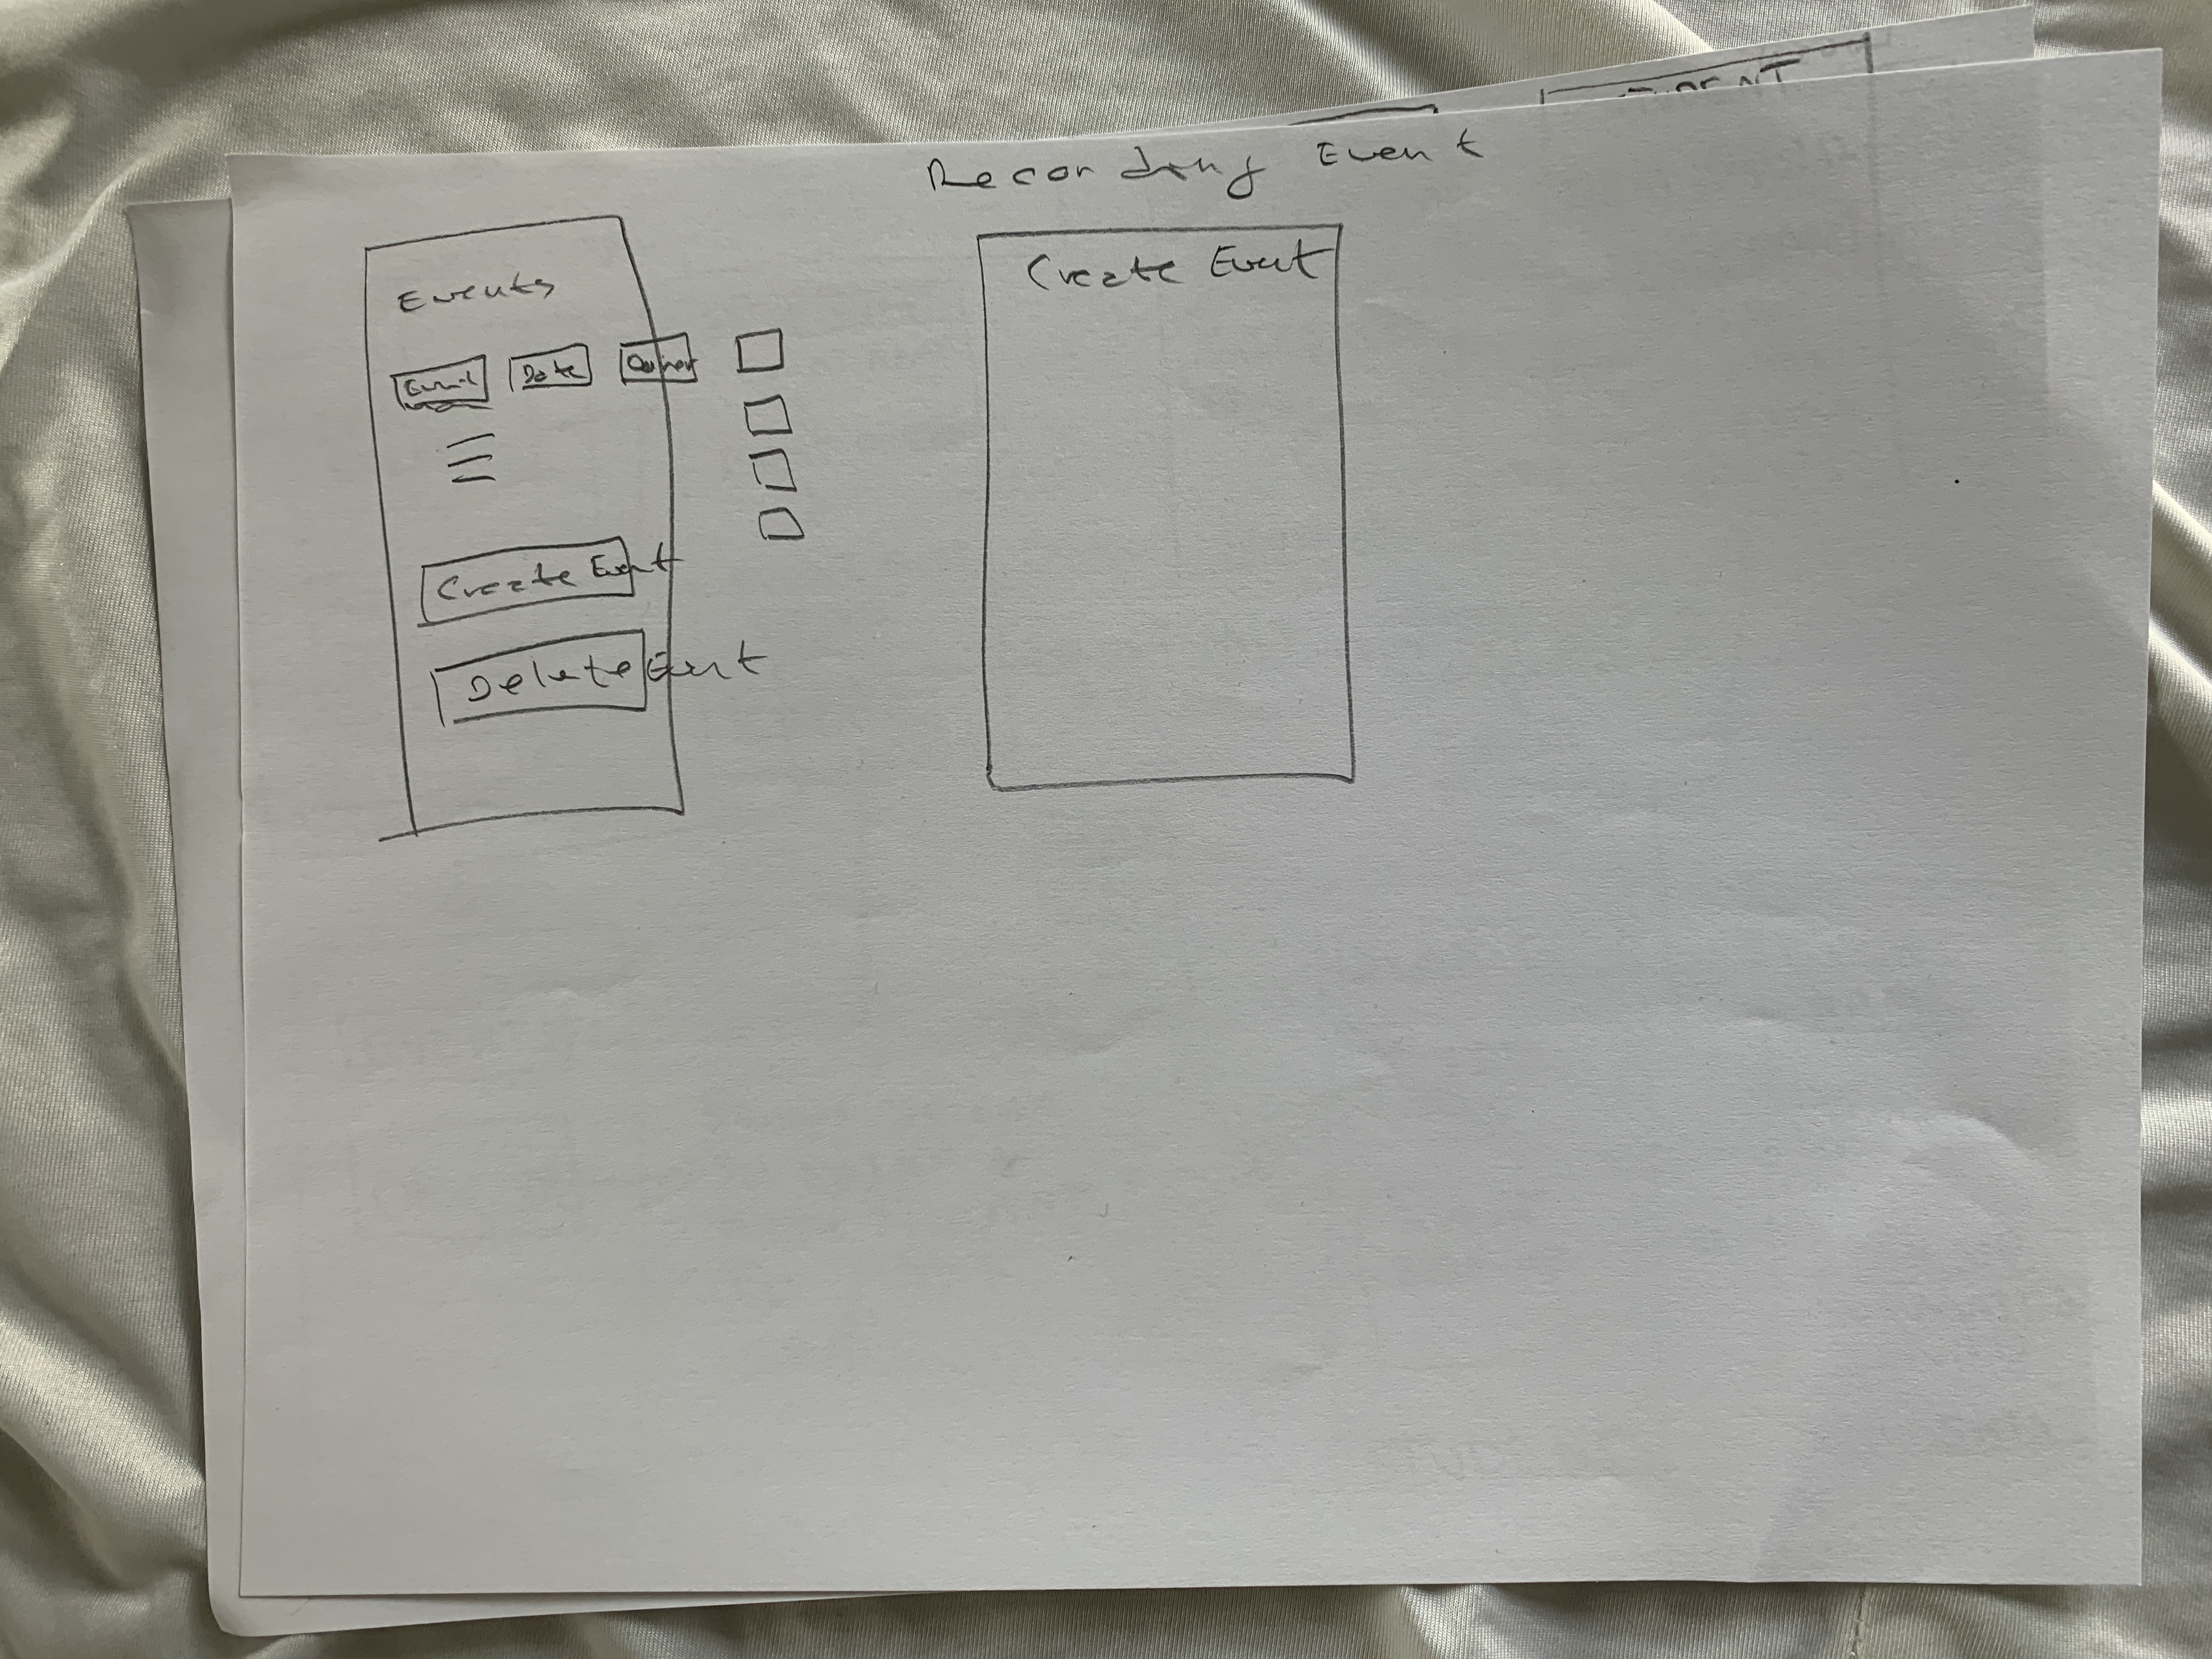 Recording Event
Events
Date
Create Event
Delete Event
Create Event